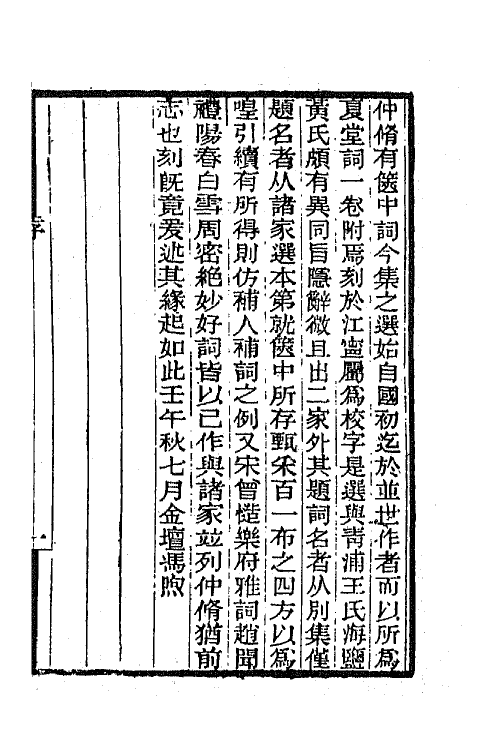 仲脩有篋中詞今集之選始自國初迄於並世作者而以所爲
夏堂詞一卷附焉刻於江甯屬爲校字是選與靑浦王氏海鹽
黃氏頗有異同旨隱辭微且出二家外其題詞名者从別集僅
題名者从諸家選本第就篋中所存甄采百一布之四方以爲
喤引續有所得則仿補人補詞之例又宋曾慥樂府雅詞趙聞
禮陽春白雪周密絕妙好詞皆以己作與諸家竝列仲脩猶前
志也刻旣竟爰述其緣起如此壬午秋七月金壇馮煦
序
一